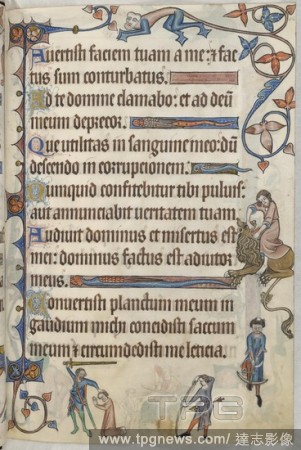 Avertisti faciem tuam a me: & fac
tus sum conturbatus.
Ad te domine clamabo: et ad deū
meum deprecor.
Que utilitas in sanguine meo: dū
descendo in corrupcionem.
Nunquid confitebitur tibi pulvis:
aut annunciabit veritatem tuam.
Audivit dominus et misertus est
mei: dominus factus est adiutor
meus.
Convertisti planctum meum in
gaudium michi concidisti saccum
meum & circumdedisti me leticia.
TPG
www.tpgnews.com/達志影像